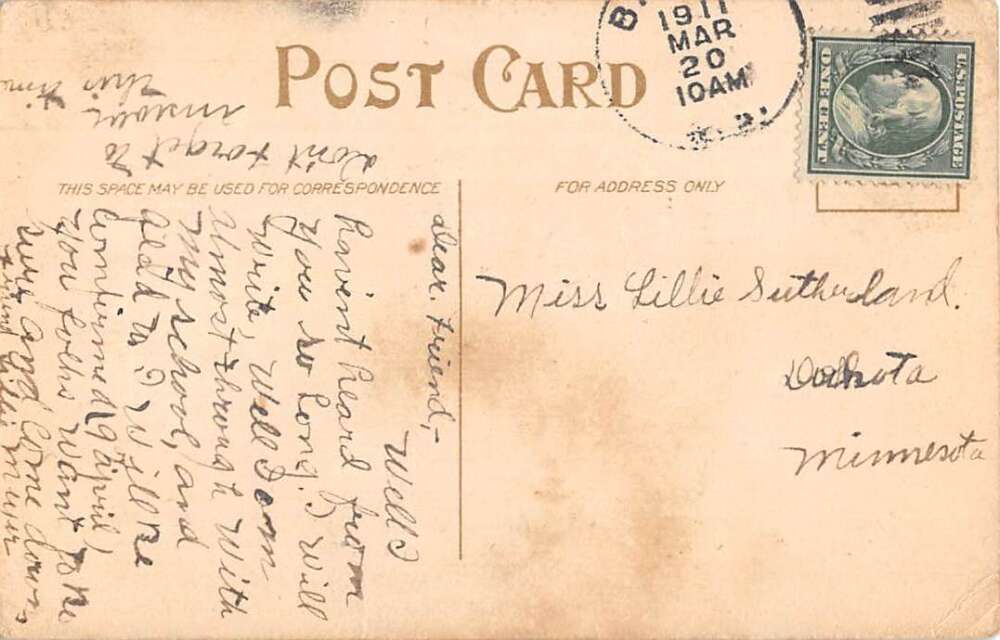 POST CARD
THIS SPACE MAY BE USED FOR CORRESPONDENCE
FOR ADDRESS ONLY
1911
MAR
20
10AM
U.S. POSTAGE
ONE CENT
Miss Lillie Sutherland.
Dakota
Minnesota
Dear, Friend,-
Well I
havint heard from
you so long. I will
write, Well I am
almost through with
my school, and
glad to I will be
comfirmed (9 April)
you folks want to be
sure and come down
Muir
don't forget to
answer
this time